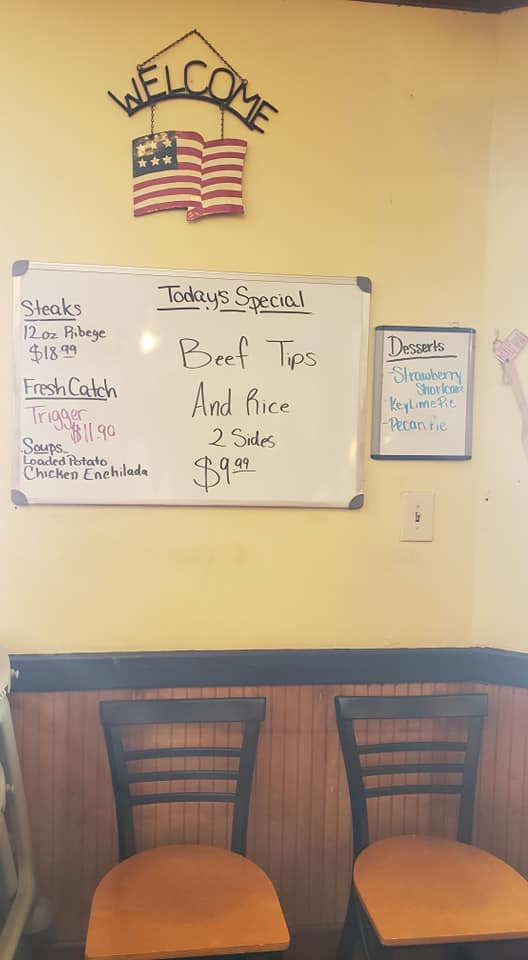 WELCOME
Steaks
12oz Ribeye
$18.99
Fresh Catch
Trigger
$11.99
Soups
Loaded Potato
Chicken Enchilada
Today's Special
Beef Tips
And Rice
2 Sides
$9.99
Desserts
-Strawberry
Shortcake
-Key Lime Pie
-Pecan Pie